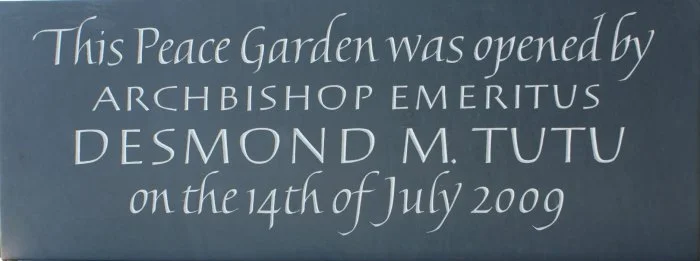 This Peace Garden was opened by
ARCHBISHOP EMERITUS
DESMOND M. TUTU
on the 14th of July 2009